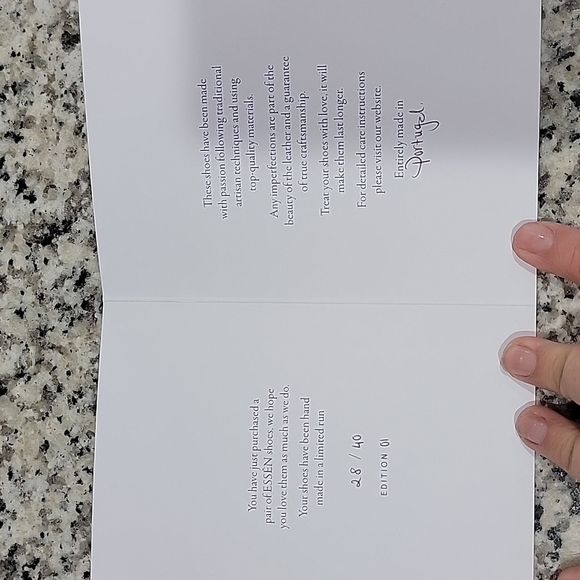 You have just purchased a
pair of ESSĒN shoes, we hope
you love them as much as we do.
Your shoes have been hand
made in a limited run
28 / 40
EDITION 01
These shoes have been made
with passion following traditional
artisan techniques and using
top-quality materials.
Any imperfections are part of the
beauty of the leather and a guarantee
of true craftsmanship.
Treat your shoes with love: it will
make them last longer.
For detailed care instructions
please visit our website.
Entirely made in
Portugal.